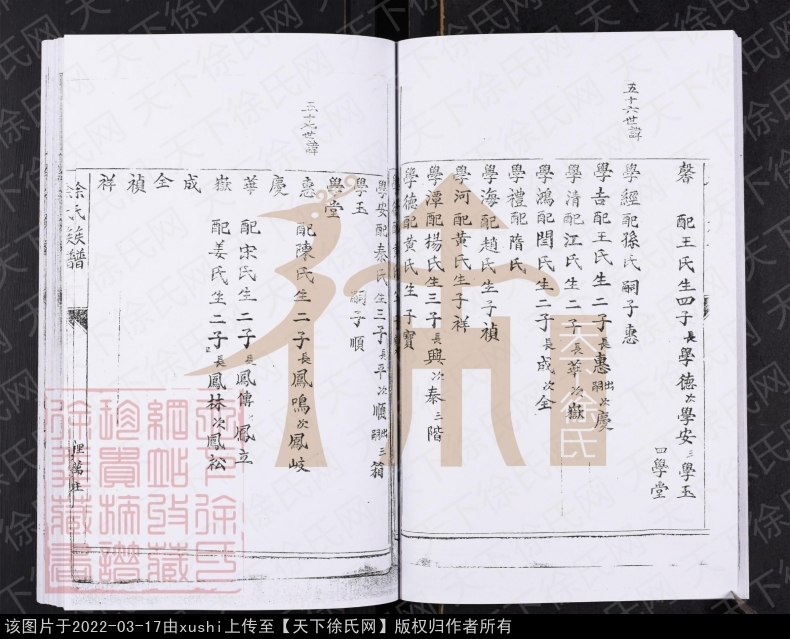 五十六世諱
馨 配王氏生四子長學德次學安三學玉四學堂
學經配孫氏嗣子惠
學吉配王氏生二子長惠出嗣次慶
學清配江氏生二子長華次嶽
學鴻配閆氏生二子長成次全
學禮配隋氏
學海配趙氏生子禎
學河配黃氏生子祥
學潭配楊氏生三子長興次泰三階
學德配黃氏生子寶
學安配秦氏生三子長平次順出嗣三箱
學玉 嗣子順
學堂
五十七世諱
惠 配陳氏生二子長鳳鳴次鳳岐
慶
華 配宋氏生二子長鳳傳 鳳立
嶽 配姜氏生二子長鳳林次鳳松
成
全
禎
祥
徐氏族譜
天下徐氏
天下徐氏网
该图片于2022-03-17由xushi上传至【天下徐氏网】版权归作者所有